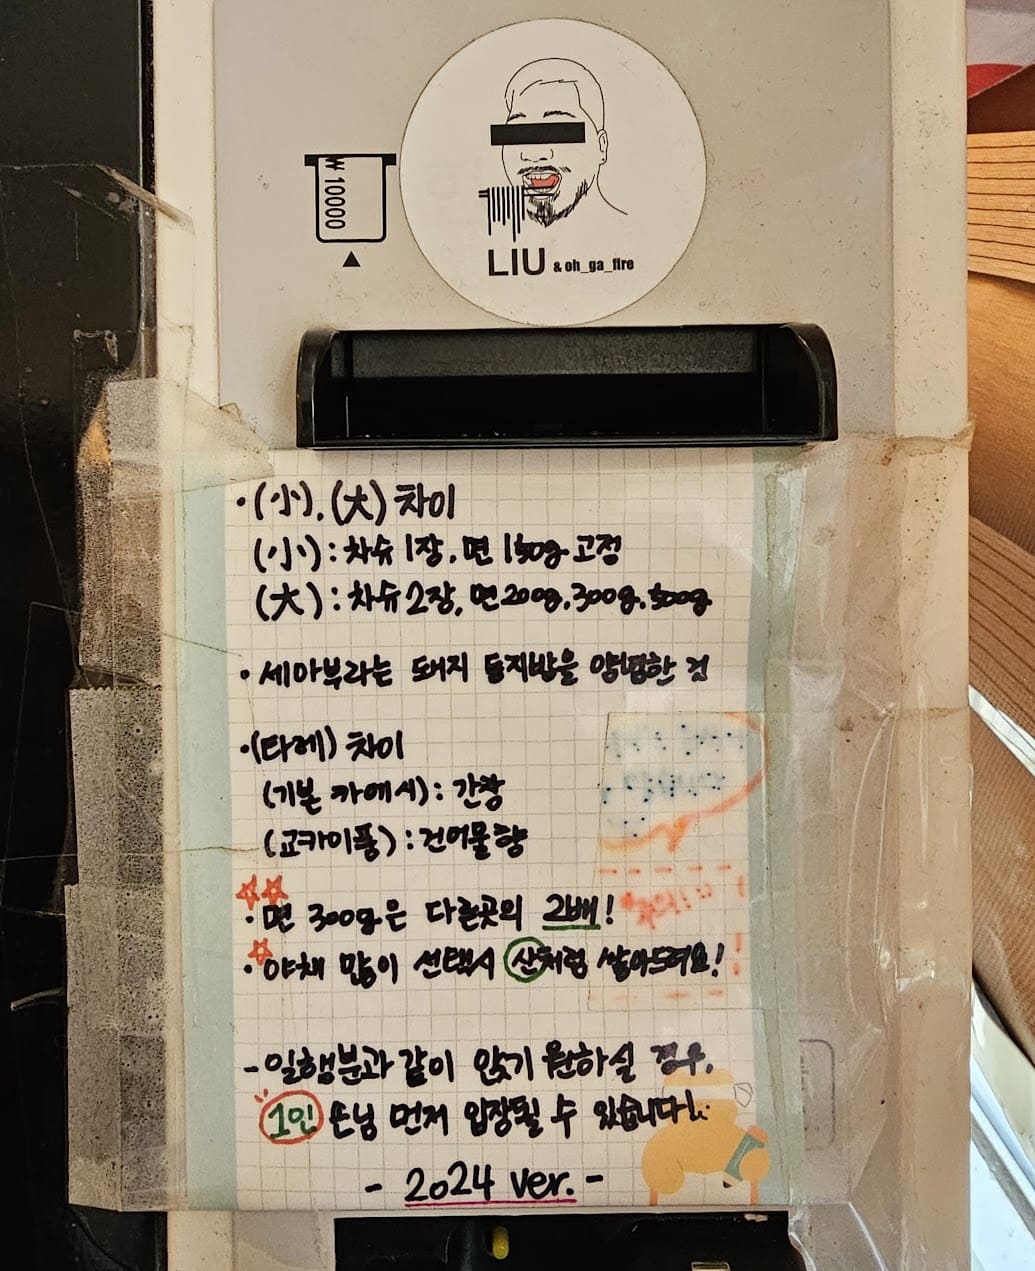 ₩ 10000
LIU & oh_ga_fire
· (小), (大) 차이
(小) : 차슈 1장, 면 150g 고정
(大) : 차슈 2장, 면 200g, 300g, 500g
· 세아부라는 돼지 등지방을 양념한 것
· (타레) 차이
(기본 카에시) : 간장
(교카이풍) : 건어물향
· 면 300g은 다른곳의 2배!
· 야채 많이 선택시 산처럼 쌓아드려요!
- 일행분과 같이 앉기 원하실 경우,
1인 손님 먼저 입장될 수 있습니다!
- 2024 ver. -